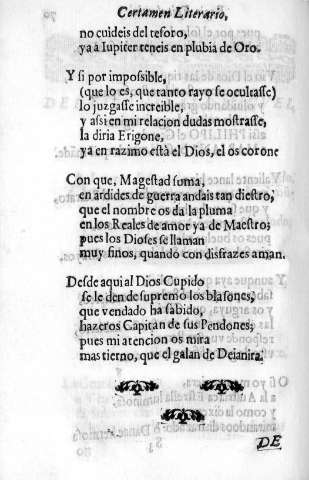 Certamen Literario,
no cuideis del tesoro,
ya a Iupiter teneis en plubia de Oro.
Y si por impossible,
(que lo es, que tanto rayo se ocultasse)
lo juzgasse increible,
y assi en mi relacion dudas mostrasse,
la diria Erigone,
ya en razimo està el Dios, el os corone
Con que, Magestad suma,
en ardides de guerra andais tan diestro,
que el nombre os da la pluma
en los Reales de amor ya de Maestro;
pues los Dioses se llaman
muy finos, quando con disfrazes aman.
Desde aqui al Dios Cupido
se le den de supremo los blasones,
que vendado ha sabido,
hazeros Capitan de sus Pendones;
pues mi atencion os mira
mas tierno, que el galan de Deianira.
DE